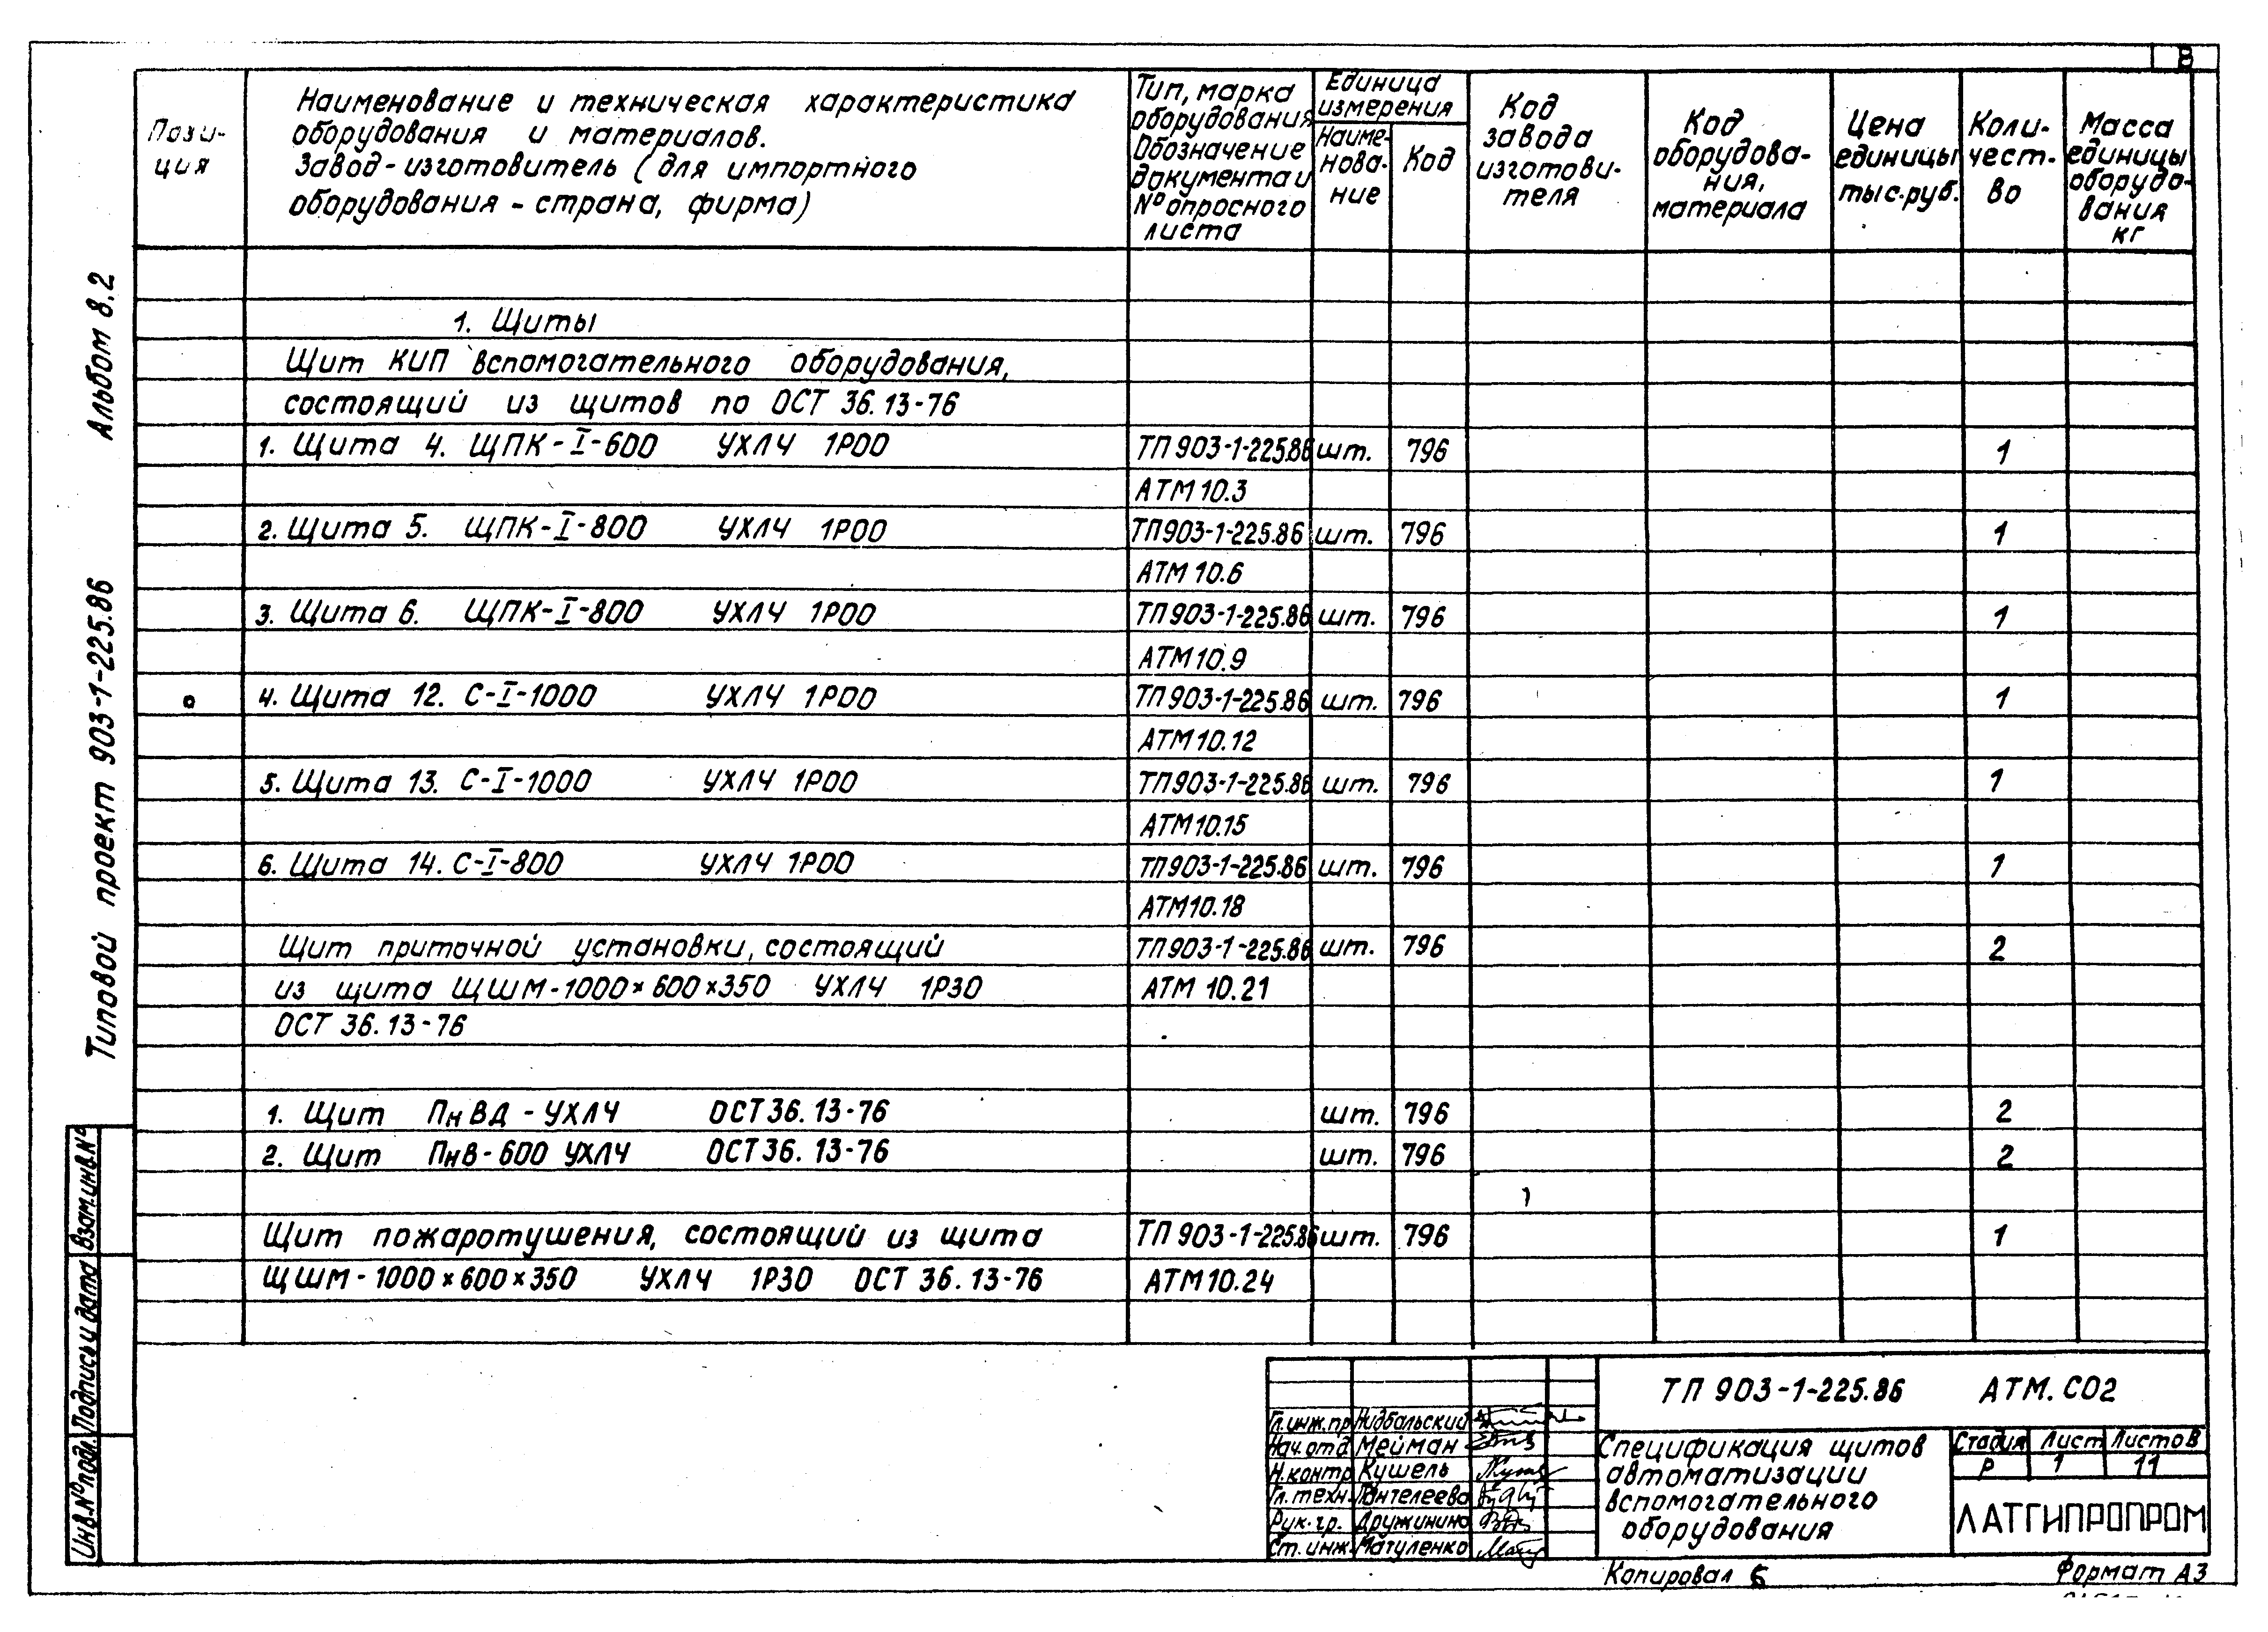 8
Пози-
ция
Наименование и техническая характеристика
оборудования и материалов.
Завод-изготовитель (для импортного
оборудования - страна, фирма)
Тип, марка
оборудования
Обозначение
документа и
№ опросного
листа
Единица
измерения
Наиме-
нова-
ние
Код
Код
завода
изготови-
теля
Код
оборудова-
ния,
материала
Цена
единицы
тыс.руб.
Коли-
чест-
во
Масса
единицы
оборудо-
вания
кг
1. Щиты
Щит КИП вспомогательного оборудования,
состоящий из щитов по ОСТ 36.13-76
1. Щита 4. ЩПК-I-600 УХЛ4 1Р00 ТП 903-1-225.86 шт. 796 1
АТМ 10.3
2. Щита 5. ЩПК-I-800 УХЛ4 1Р00 ТП 903-1-225.86 шт. 796 1
АТМ 10.6
3. Щита 6. ЩПК-I-800 УХЛ4 1Р00 ТП 903-1-225.86 шт. 796 1
АТМ 10.9
4. Щита 12. С-I-1000 УХЛ4 1Р00 ТП 903-1-225.86 шт. 796 1
АТМ 10.12
5. Щита 13. С-I-1000 УХЛ4 1Р00 ТП 903-1-225.86 шт. 796 1
АТМ 10.15
6. Щита 14. С-I-800 УХЛ4 1Р00 ТП 903-1-225.86 шт. 796 1
АТМ 10.18
Щит приточной установки, состоящий ТП 903-1-225.86 шт. 796 2
из щита ЩШМ-1000×600×350 УХЛ4 1Р30 АТМ 10.21
ОСТ 36.13-76
1. Щит ПнВД - УХЛ4 ОСТ 36.13-76 шт. 796 2
2. Щит ПнВ-600 УХЛ4 ОСТ 36.13-76 шт. 796 2
Щит пожаротушения, состоящий из щита ТП 903-1-225.86 шт. 796 1
ЩШМ-1000×600×350 УХЛ4 1Р30 ОСТ 36.13-76 АТМ 10.24
Альбом 8.2
Типовой проект 903-1-225.86
Взам.инв.№
Подпись и дата
Инв.№ подл.
ТП 903-1-225.86 АТМ.СО2
Гл.инж.пр Нидбальский
Нач.отд Мейман
Н.контр Кушель
Гл.техн. Пантелеева
Рук.гр. Дружинина
Ст.инж. Матуленко
Спецификация щитов
автоматизации
вспомогательного
оборудования
Стадия Лист Листов
Р 1 11
ЛАТГИПРОПРОМ
Копировал
Формат А3